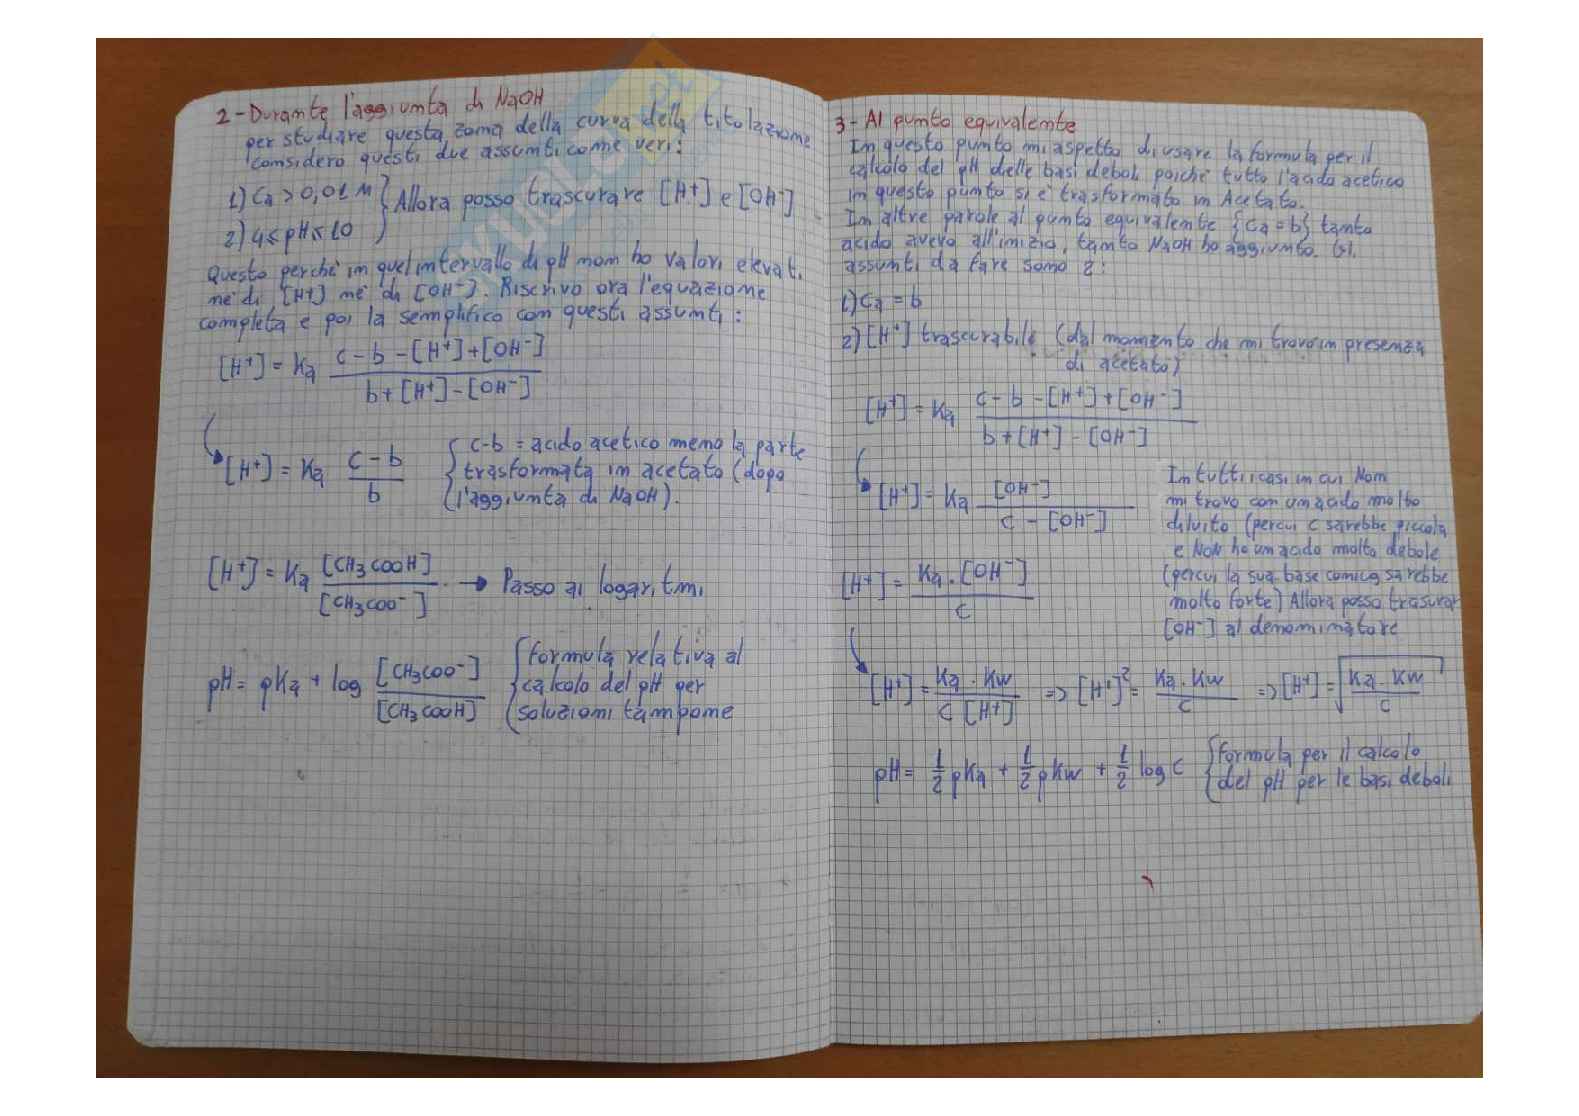 2-Durante l'aggiunta di NaOH
per studiare questa zona della curva della titolazione
considero questi due assunti come veri:
1) Ca > 0,01 M } Allora posso trascurare [H+] e [OH-]
2) 4 ≤ pH ≤ 10
Questo perché in quel intervallo di pH non ho valori elevati
né di [H+] né di [OH-]. Riscrivo ora l'equazione
completa e poi la semplifico con questi assunti:
[H+] = Ka (c - b - [H+] + [OH-]) / (b + [H+] - [OH-])
[H+] = Ka (c - b) / b
{ c-b = acido acetico meno la parte
trasformata in acetato (dopo
l'aggiunta di NaOH).
[H+] = Ka [CH3COOH] / [CH3COO-] → Passo ai logaritmi
pH = pKa + log [CH3COO-] / [CH3COOH]
{ formula relativa al
calcolo del pH per
soluzioni tampone
3-Al punto equivalente
In questo punto mi aspetto di usare la formula per il
calcolo del pH delle basi deboli poiché tutto l'acido acetico
in questo punto si è trasformato in Acetato.
In altre parole al punto equivalente {Ca = b} tanto
acido avevo all'inizio, tanto NaOH ho aggiunto. Gli
assunti da fare sono 2:
1) Ca = b
2) [H+] trascurabile (dal momento che mi trovo in presenza
di acetato)
[H+] = Ka (c - b - [H+] + [OH-]) / (b + [H+] - [OH-])
[H+] = Ka [OH-] / (c - [OH-])
In tutti i casi in cui Non
mi trovo con un acido molto
diluito (per cui c sarebbe piccola
e NON ho un acido molto debole
(per cui la sua base coniug sarebbe
molto forte) Allora posso trascurar
[OH-] al denominatore
[H+] = Ka · [OH-] / c
[H+] = Ka · Kw / c [H+] => [H+]² = Ka · Kw / c => [H+] = √(Ka · Kw / c)
pH = 1/2 pKa + 1/2 pKw + 1/2 log c
{ formula per il calcolo
del pH per le basi deboli